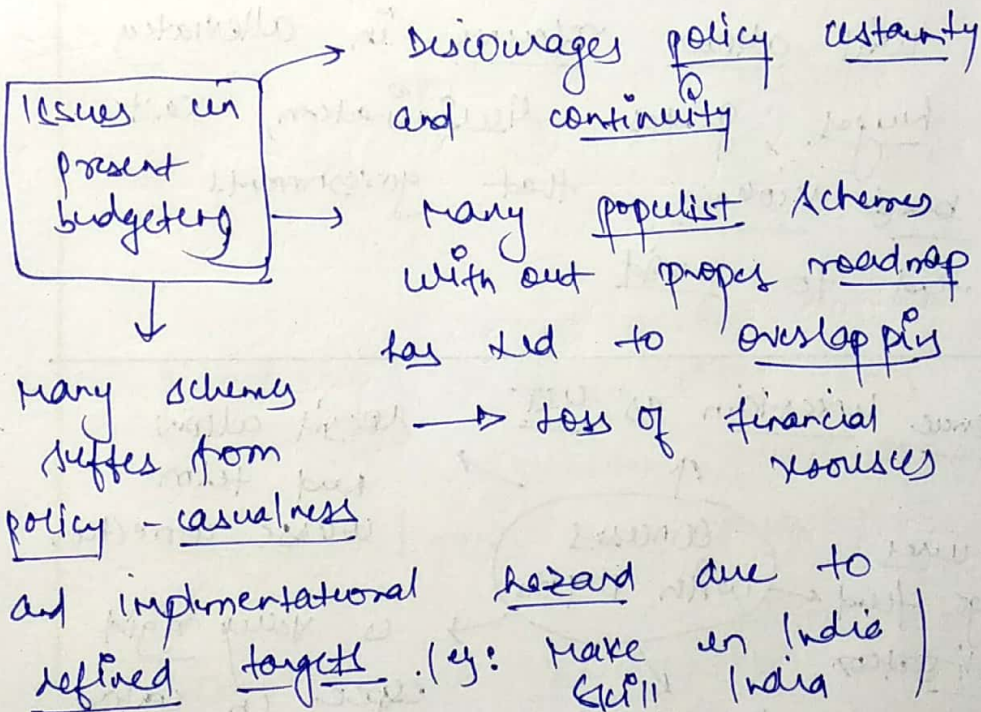 Issues in
present
budgeting
Discourages policy certainity
and continuity
Many populist schemes
with out proper roadmap
has led to overlapping
→ Loss of financial
resources
Many schemes
suffer from
policy - casualness
and implmentational hazard due to
refined targets. (eg: Make in India
Skill India)